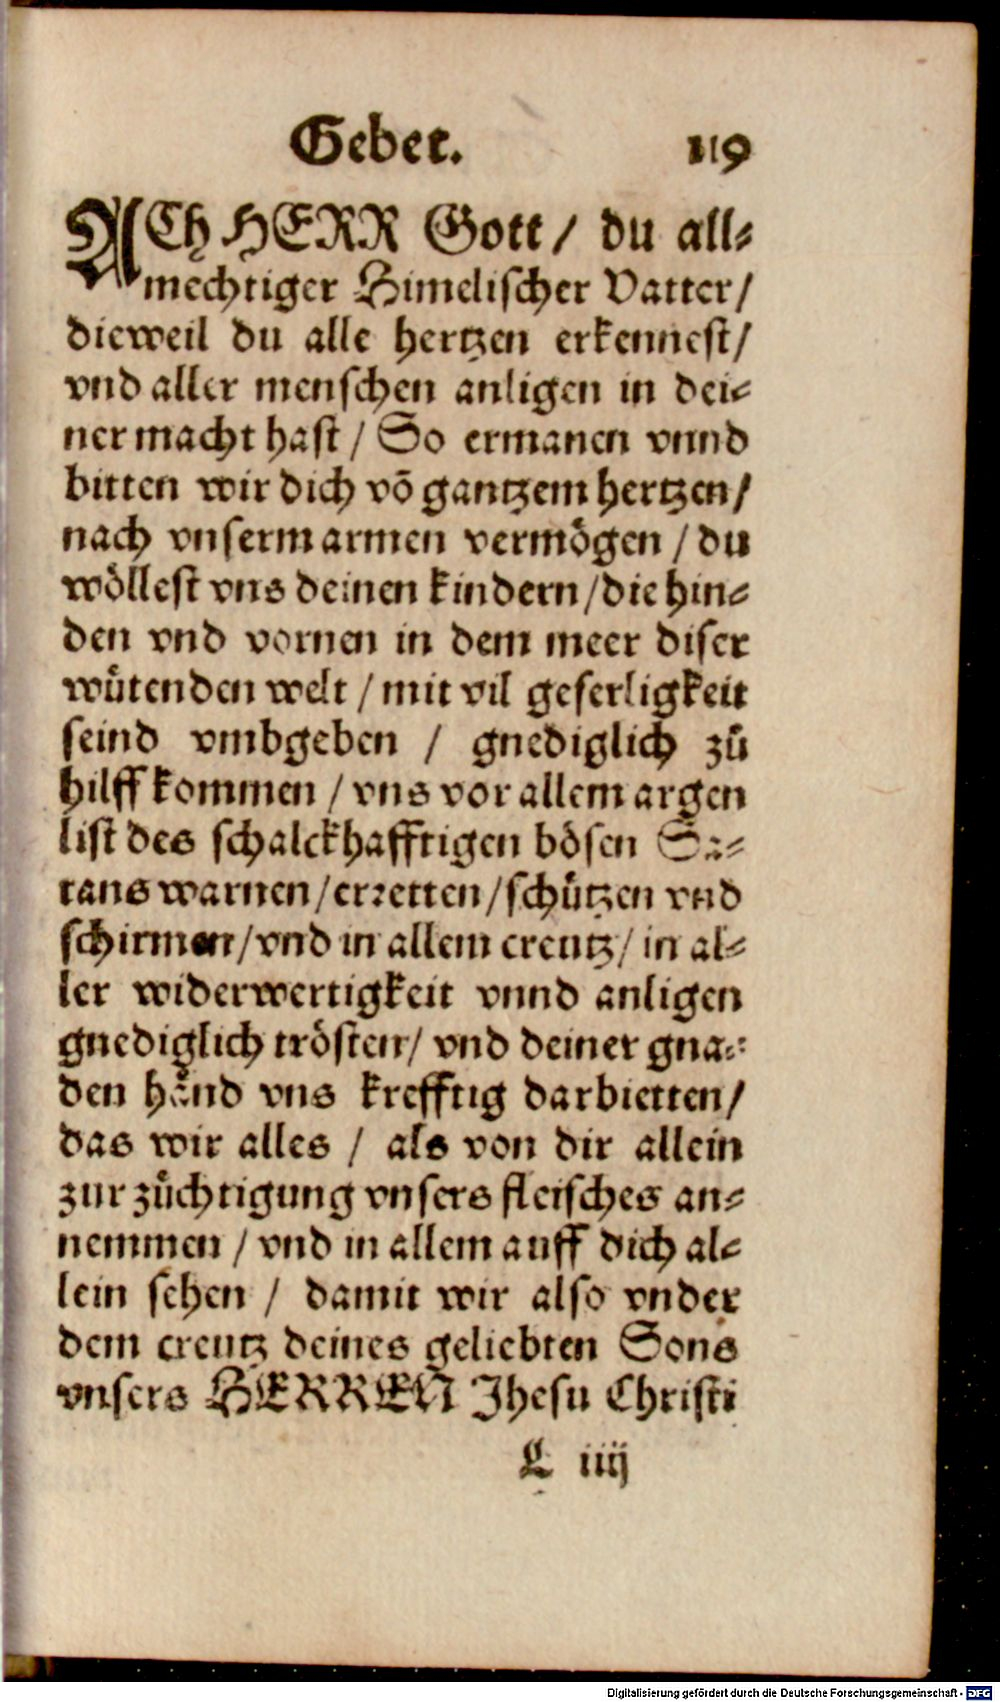 Gebet. 119
ACh HERR Gott / du all⸗
mechtiger Himelischer Vatter /
dieweil du alle hertzen erkennest /
vnd aller menschen anligen in dei⸗
ner macht hast / So ermanen vnnd
bitten wir dich võ gantzem hertzen /
nach vnserm armen vermögen / du
wöllest vns deinen kindern / die hin⸗
den vnd vornen in dem meer diser
wütenden welt / mit vil geferligkeit
seind vmbgeben / gnediglich zů
hilff kommen / vns vor allem argen
list des schalckhafftigen bösen Sa⸗
tans warnen / erretten / schützen vnd
schirmen / vnd in allem creutz / in al⸗
ler widerwertigkeit vnnd anligen
gnediglich trösten / vnd deiner gna⸗
den händ vns krefftig darbietten /
das wir alles / als von dir allein
zur züchtigung vnsers fleisches an⸗
nemmen / vnd in allem auff dich al⸗
lein sehen / damit wir also vnder
dem creutz deines geliebten Sons
vnsers HERREN Jhesu Christi
L iiij
Digitalisierung gefördert durch die Deutsche Forschungsgemeinschaft - DFG